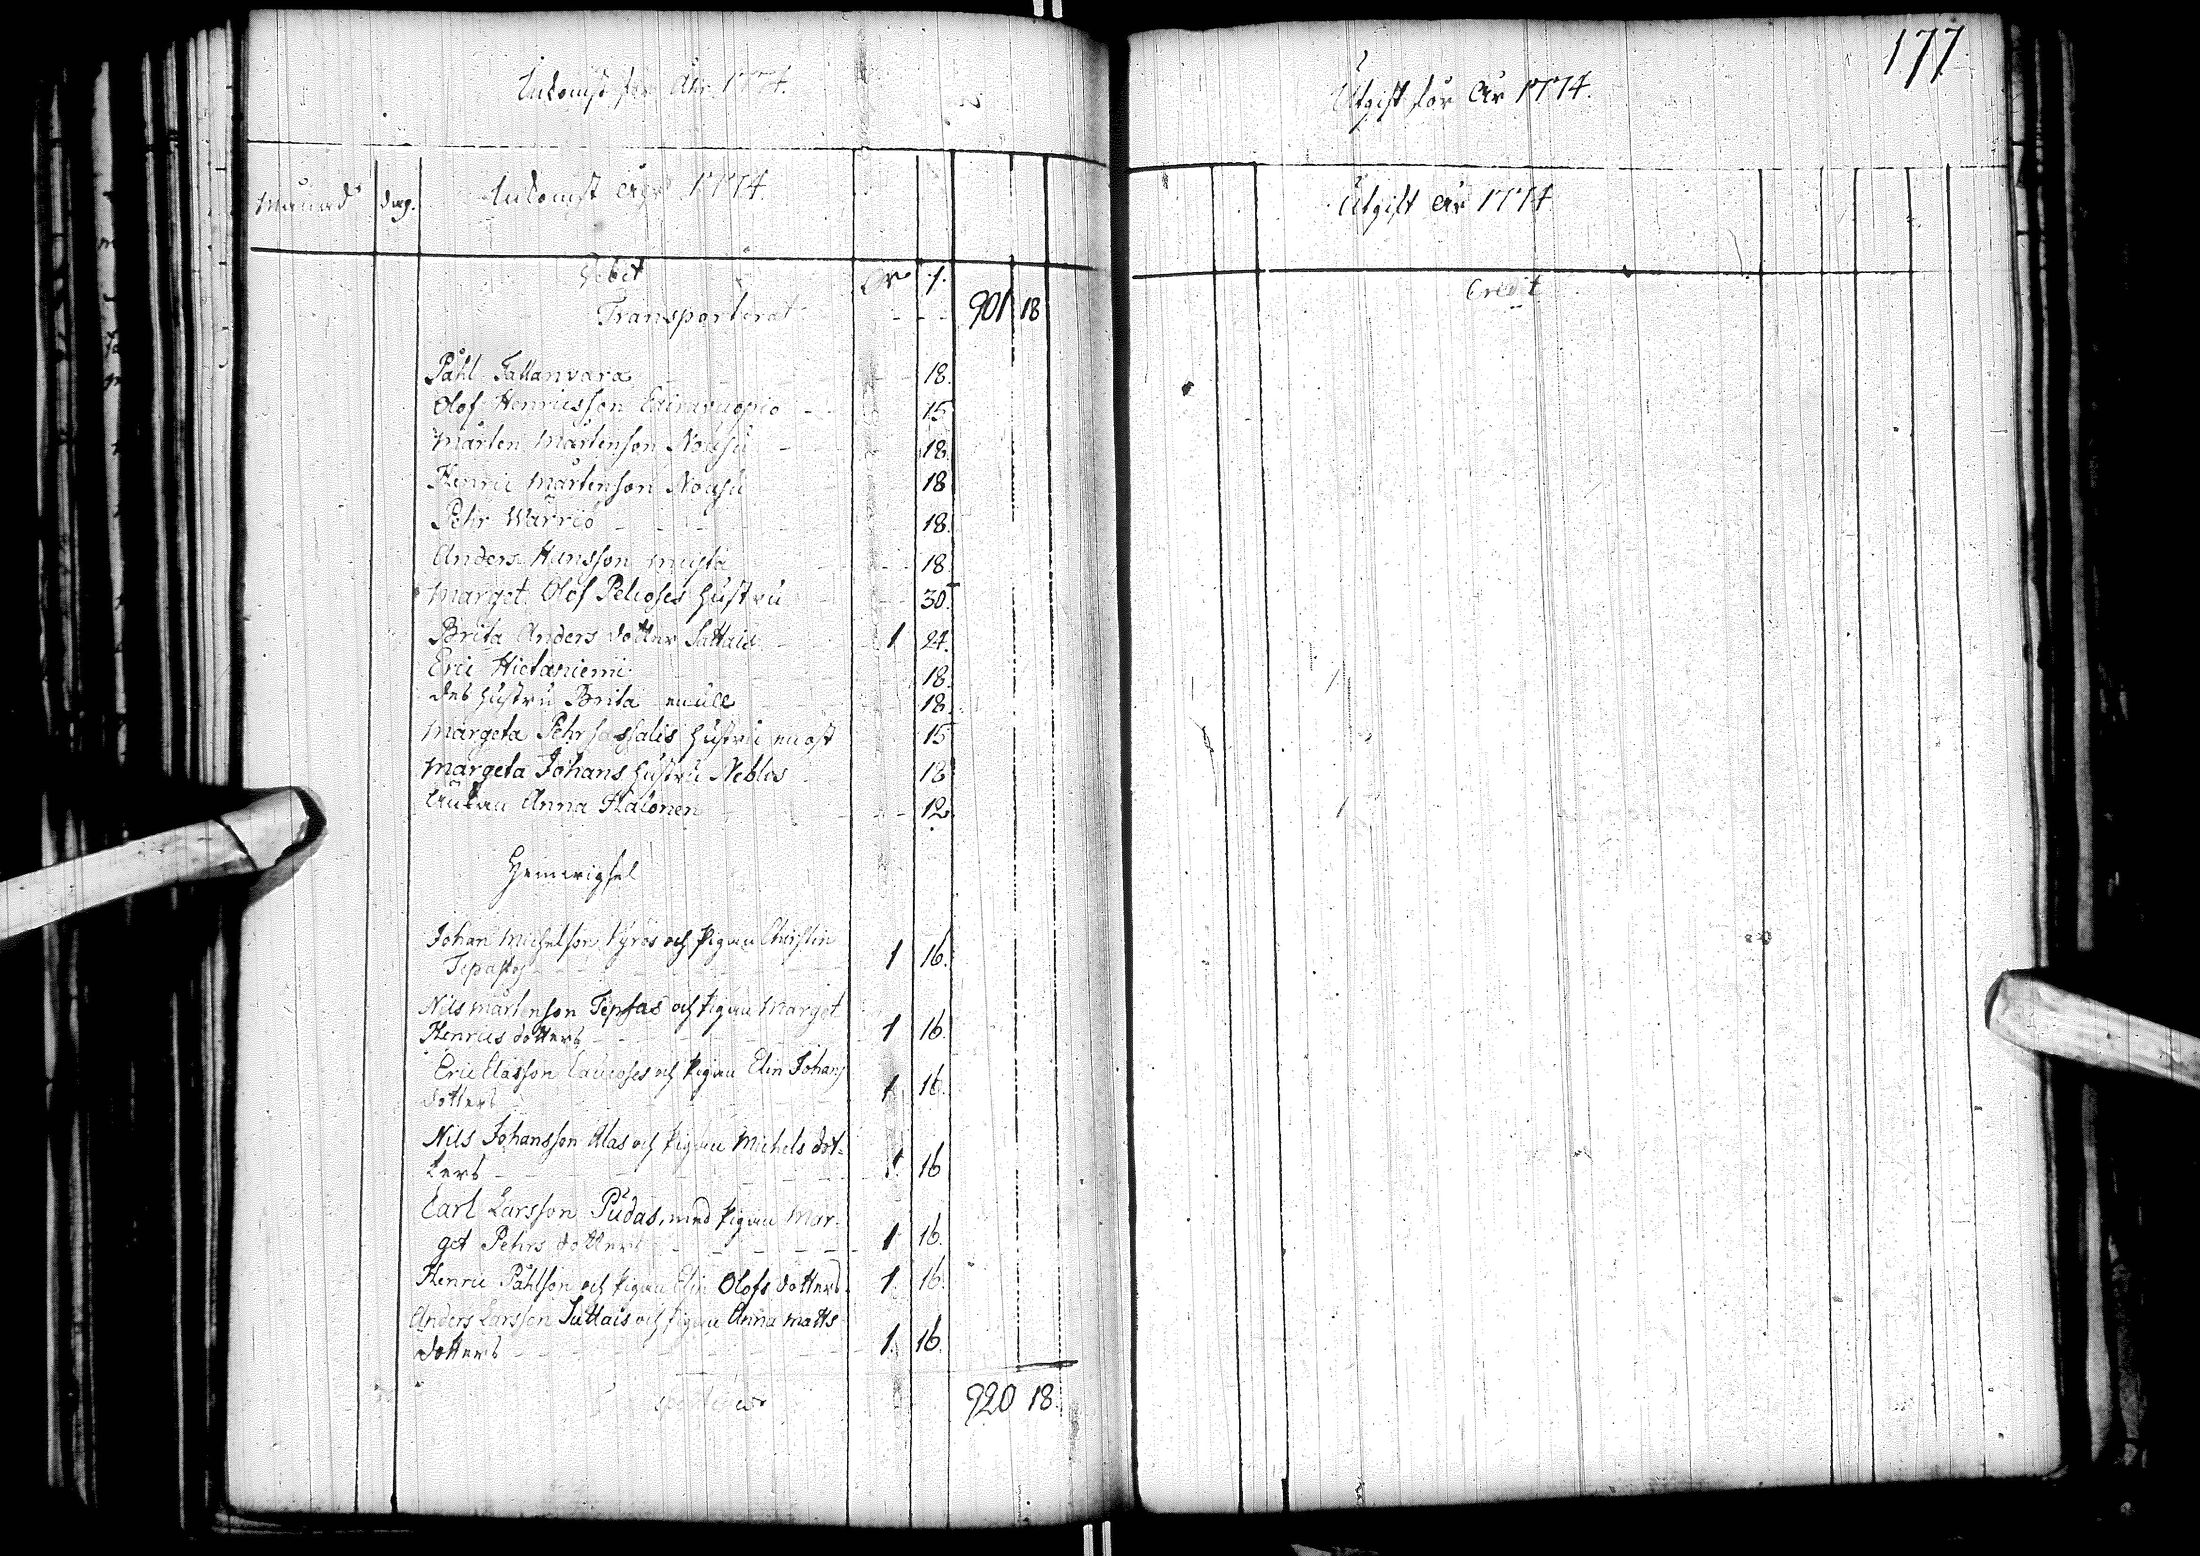 177
Inkomst för Åhr 1774.
Månad dag. Inkomst År 1774.
Debet
Transporterat - - - 901 18
Påhl Tattanvara 18.
Olof Henricsson 15
Mårten Mårtenson Nousu 18.
Henric Mårtenson Nousu 18
Pehr Warrio 18.
Anders Hansson Musta 18
Marget Olof Pelcoses hustru 30.
Brita Anders dotter Sattais 1 24.
Eric Hietaniemi 18.
des hustru Brita 18.
Margeta Pehr Sassalis hustru 15
Margeta Johans hustru Neblos 18
Änkan Anna Halonen 12.
Hemvigsel
Johan Michelson Kyrös och pigan Christin
Tepasto 1 16.
Nils Mårtenson Tepsas och pigan Marget
Henrics dotters 1 16.
Eric Elasson och pigan Elin Johans
dotters 1 16.
Nils Johansson Alas och pigan Michels dot-
ters 1. 16
Carl Larsson Pudas, med pigan Mar-
get Pehrs dotters 1 16.
Henric Påhlson och pigan Elin Olofs dotters 1. 16.
Anders Larsson Sattais och pigan Anna Matts
dotters 1. 16.
920 18.
Utgift för År 1774.
Utgift År 1774
Credit